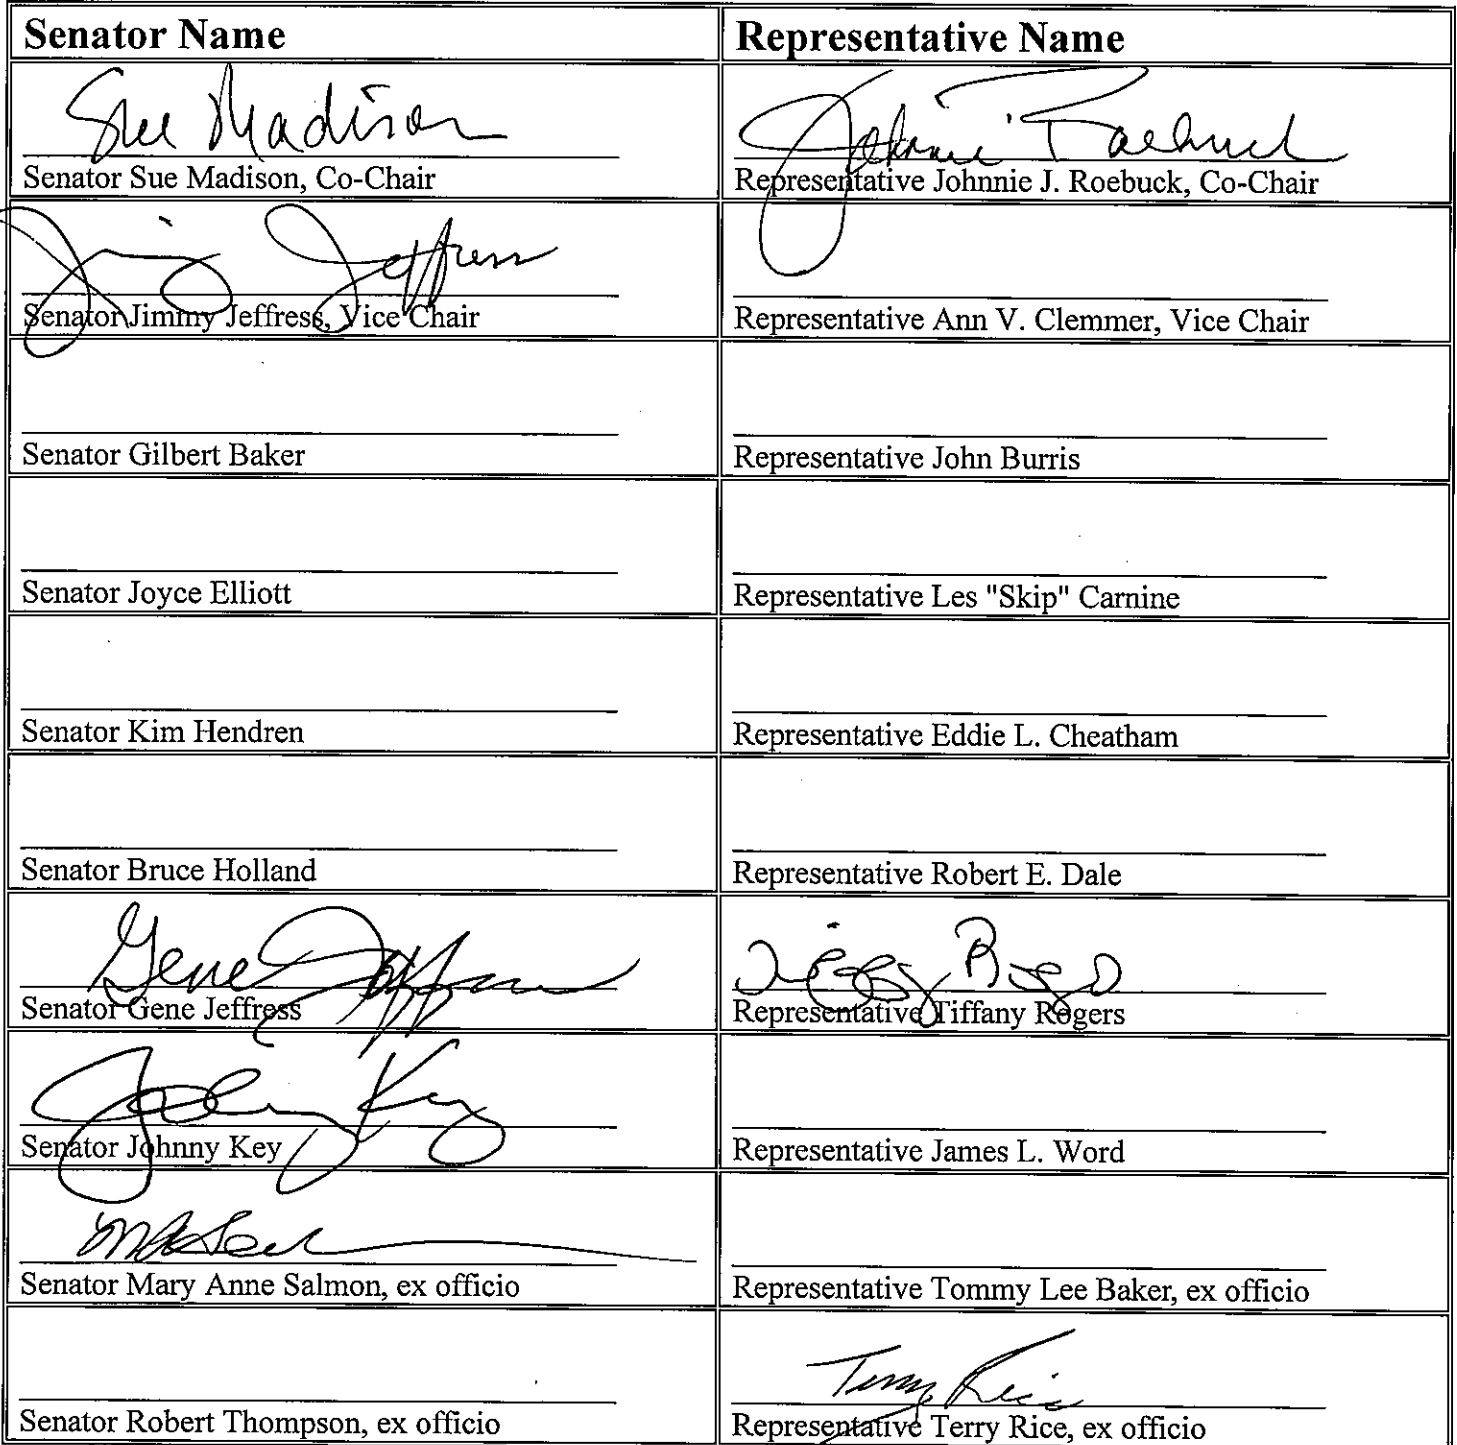 Senator Name
Representative Name
Sue Madison
Johnnie Roebuck
Senator Sue Madison, Co-Chair
Representative Johnnie J. Roebuck, Co-Chair
Jimmy Jeffress
Senator Jimmy Jeffress, Vice Chair
Representative Ann V. Clemmer, Vice Chair
Senator Gilbert Baker
Representative John Burris
Senator Joyce Elliott
Representative Les "Skip" Carnine
Senator Kim Hendren
Representative Eddie L. Cheatham
Senator Bruce Holland
Representative Robert E. Dale
Gene Jeffress
Senator Gene Jeffress
Representative Tiffany Rogers
Johnny Key
Senator Johnny Key
Representative James L. Word
Senator Mary Anne Salmon, ex officio
Representative Tommy Lee Baker, ex officio
Terry Rice
Senator Robert Thompson, ex officio
Representative Terry Rice, ex officio